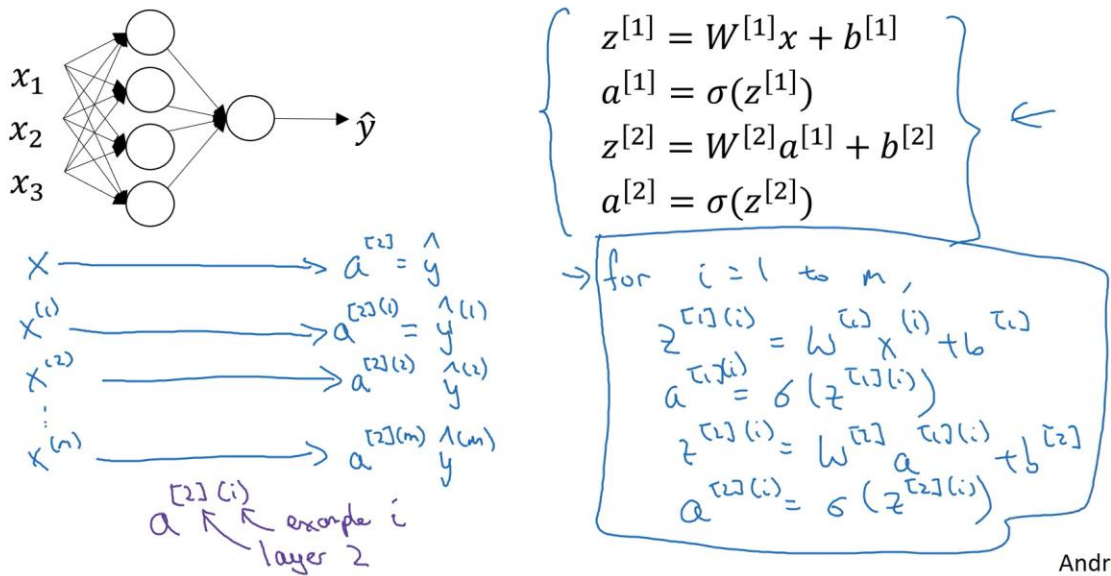 x₁
x₂
x₃
ŷ
z^[1] = W^[1]x + b^[1]
a^[1] = σ(z^[1])
z^[2] = W^[2]a^[1] + b^[2]
a^[2] = σ(z^[2])
←
x → a^[2] = ŷ
x^(1) → a^[2](1) = ŷ^(1)
x^(2) → a^[2](2) ŷ^(2)
⋮
x^(m) → a^[2](m) ŷ^(m)
a^[2](i)
example i
layer 2
→ for i = 1 to m,
z^[1](i) = W^[1] x^(i) + b^[1]
a^[1](i) = σ(z^[1](i))
z^[2](i) = W^[2] a^[1](i) + b^[2]
a^[2](i) = σ(z^[2](i))
Andr